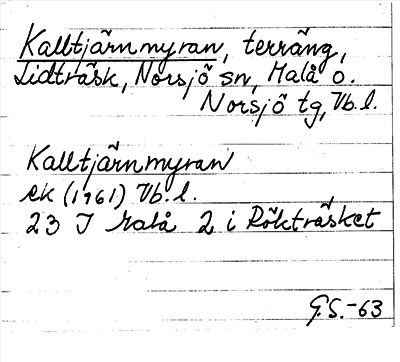 Kalltjärnmyran, terräng,
Lidträsk, Norsjö sn, Malå o.
Norsjö tg, Vb.l.
Kalltjärnmyran
ek (1961) Vb.l.
23 J Malå 2 i Rökträsket
G.S.-63